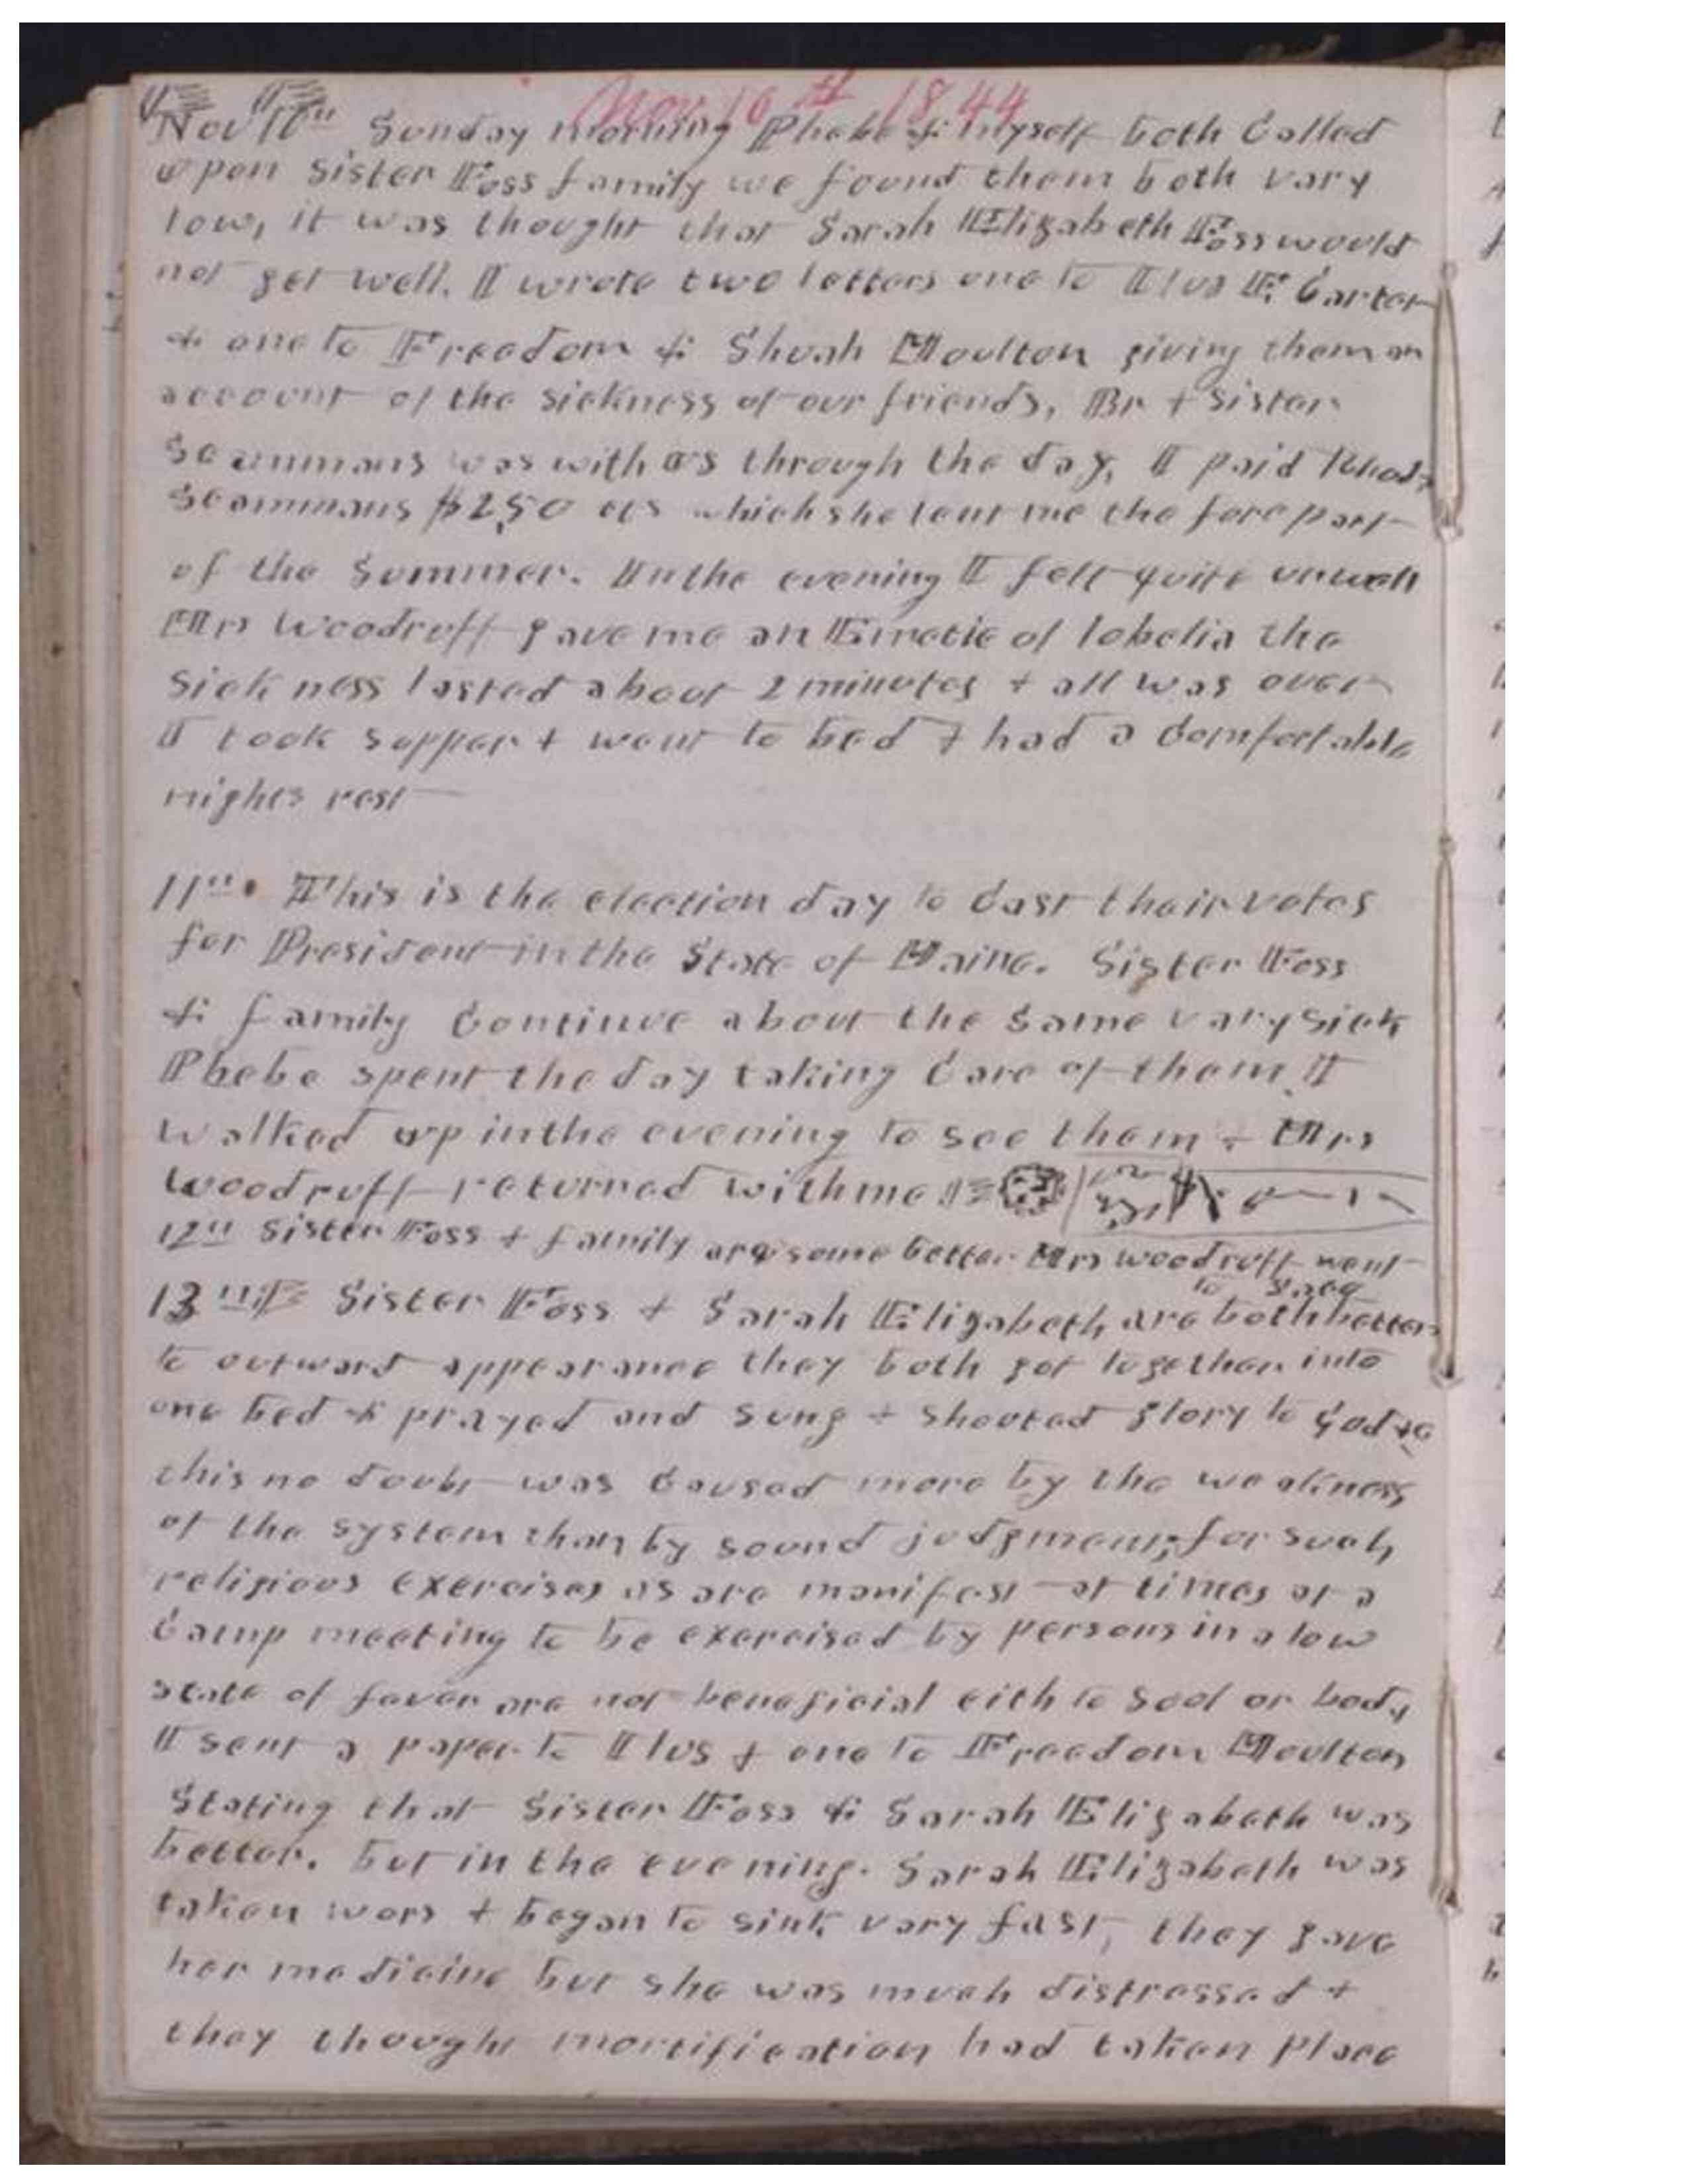 Nov 10th 1844
Nov 10th Sunday morning Phebe & myself both Called
upon Sister Foss family we found them both vary
low, it was thought that Sarah Elizabeth Foss would
not get well. I wrote two letters one to Ilus F. Carter
& one to Freedom & Shuah Moulton giving them an
account of the sickness of our friends, Br + Sister
Scammans was with us through the day, I paid Rhoda
Scammans $2,50 cts which she lent me the fore part
of the Summer. In the evening I felt quite unwell
Mrs Woodruff gave me an Emetic of lobelia the
sickness lasted about 2 minutes + all was over
I took supper + went to bed + had a Comfortable
nights rest
11th. This is the election day to Cast their votes
for President in the State of Maine. Sister Foss
& family Continue about the Same vary sick
Phebe spent the day taking Care of them I
walked up in the evening to see them + Mrs
Woodruff returned with me
12th Sister Foss + family are some better Mrs Woodruff went
to Saco
13th Sister Foss + Sarah Elizabeth are both better
to outward appearance they both got together into
one bed & prayed and sung + shouted glory to God +c
this no doubt was Caused more by the weakness
of the system than by sound judgment, for such
religious exercises as are manifest at times at a
Camp meeting to be exercised by persons in a low
state of fever are not beneficial eith to soul or body
I sent a paper to Ilus + one to Freedom Moulton
Stating that Sister Foss & Sarah Elizabeth was
better. but in the evening. Sarah Elizabeth was
taken wors + began to sink vary fast, they gave
her medicine but she was much distressed +
they thought mortification had taken place